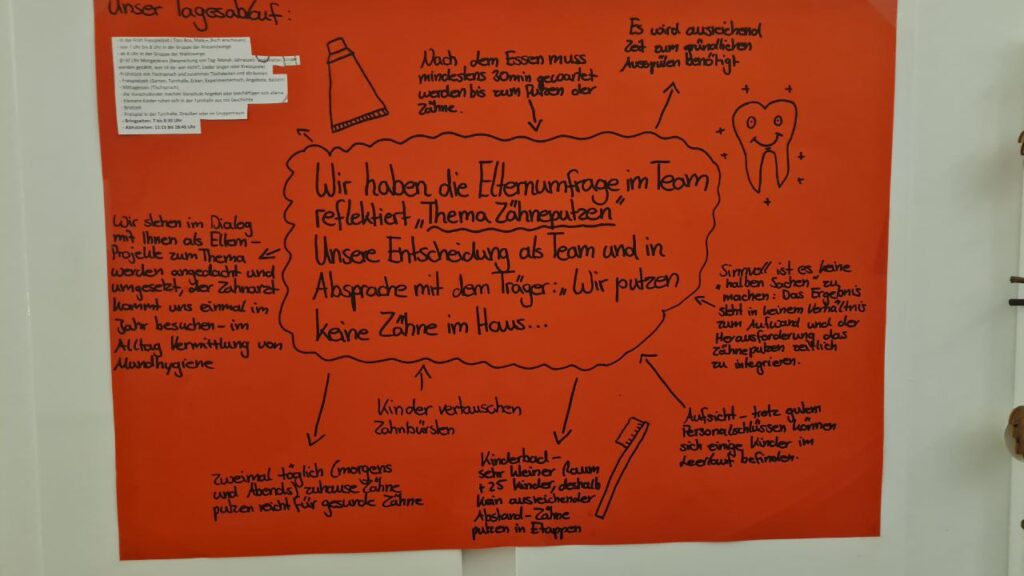 Unser Tagesablauf:
- von 7 Uhr bis 8 Uhr in der Gruppe der
- ab 8 Uhr in der Gruppe der
- Frühstück mit Tischspruch und
- Mittagessen (Tischspruch)
- Brotzeit
- Freispiel in der Turnhalle, Draußen oder im Gruppenraum
- Bringzeiten: 7 bis 8:30 Uhr
- Abholzeiten:
Nach dem Essen muss
mindestens 30min gewartet
werden bis zum Putzen der
Zähne.
Es wird ausreichend
Zeit zum gründlichen
Ausspülen benötigt
Wir haben die Elternumfrage im Team
reflektiert „Thema Zähneputzen"
Unsere Entscheidung als Team und in
Absprache mit dem Träger: „Wir putzen
keine Zähne im Haus...
Wir stehen im Dialog
mit Ihnen als Eltern-
Projekte zum Thema
werden angedacht und
umgesetzt, der Zahnarzt
kommt uns einmal im
Jahr besuchen - im
Alltag Vermittlung von
Mundhygiene
Sinnvoll ist es keine
„halben Sachen" zu
machen: Das Ergebnis
steht in keinem Verhältnis
zum Aufwand und der
Herausforderung das
Zähneputzen zeitlich
zu integrieren.
Kinder vertauschen
Zahnbürsten
Aufsicht - trotz gutem
Personalschlüssen können
sich einige Kinder im
Leerlauf befinden.
Zweimal täglich (morgens
und Abends) zuhause Zähne
putzen reicht für gesunde Zähne
Kinderbad -
sehr kleiner Raum
+ 25 Kinder, deshalb
kein ausreichender
Abstand - Zähne
putzen in Etappen